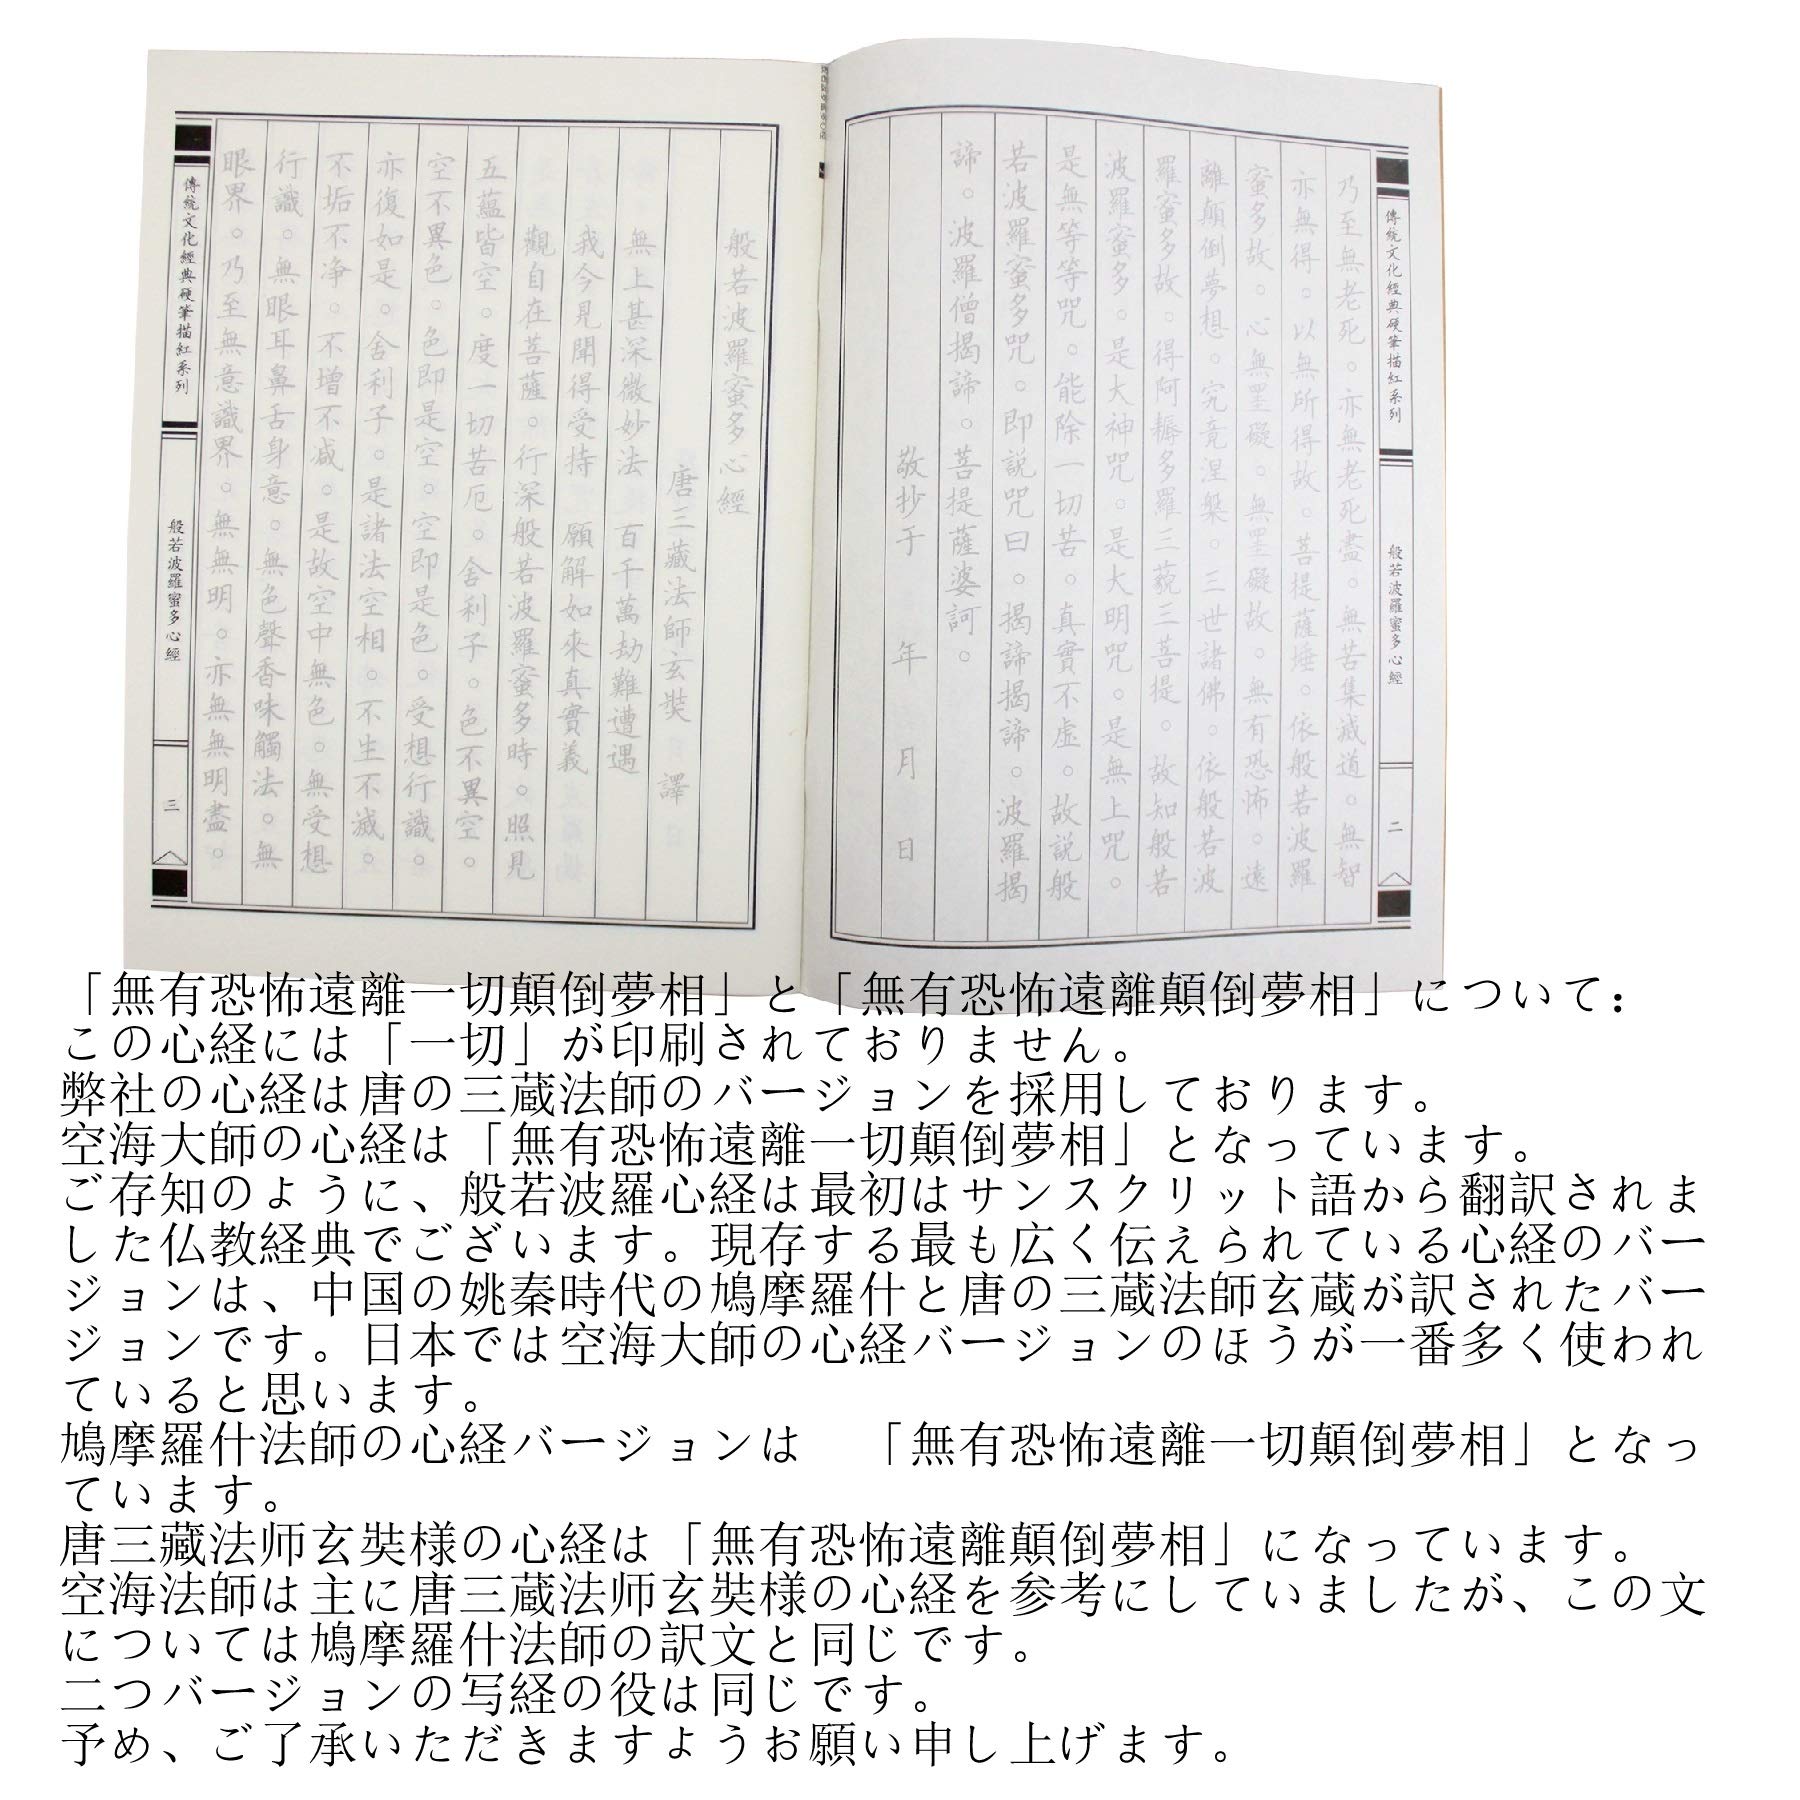 傳統文化經典硬筆描紅系列
般若波羅蜜多心經
二
乃至無老死。亦無老死盡。無苦集滅道。無智
亦無得。以無所得故。菩提薩埵。依般若波羅
蜜多故。心無罣礙。無罣礙故。無有恐怖。遠
離顛倒夢想。究竟涅槃。三世諸佛。依般若波
羅蜜多故。得阿耨多羅三藐三菩提。故知般若
波羅蜜多。是大神咒。是大明咒。是無上咒。
是無等等咒。能除一切苦。真實不虛。故説般
若波羅蜜多咒。即説咒曰。揭諦揭諦。波羅揭
諦。波羅僧揭諦。菩提薩婆訶。
敬抄于 年 月 日
般若波羅蜜多心經
唐三藏法師玄奘 譯
無上甚深微妙法 百千萬劫難遭遇
我今見聞得受持 願解如來真實義
觀自在菩薩。行深般若波羅蜜多時。照見
五蘊皆空。度一切苦厄。舍利子。色不異空。
空不異色。色即是空。空即是色。受想行識。
亦復如是。舍利子。是諸法空相。不生不滅。
不垢不净。不增不减。是故空中無色。無受想
行識。無眼耳鼻舌身意。無色聲香味觸法。無
眼界。乃至無意識界。無無明。亦無無明盡。
傳統文化經典硬筆描紅系列
般若波羅蜜多心經
三
「無有恐怖遠離一切顛倒夢相」と「無有恐怖遠離顛倒夢相」について：
この心経には「一切」が印刷されておりません。
弊社の心経は唐の三蔵法師のバージョンを採用しております。
空海大師の心経は「無有恐怖遠離一切顛倒夢相」となっています。
ご存知のように、般若波羅心経は最初はサンスクリット語から翻訳されま
した仏教経典でございます。現存する最も広く伝えられている心経のバー
ジョンは、中国の姚秦時代の鳩摩羅什と唐の三蔵法師玄蔵が訳されたバー
ジョンです。日本では空海大師の心経バージョンのほうが一番多く使われ
ていると思います。
鳩摩羅什法師の心経バージョンは　「無有恐怖遠離一切顛倒夢相」となっ
ています。
唐三藏法师玄奘様の心経は「無有恐怖遠離顛倒夢相」になっています。
空海法師は主に唐三蔵法师玄奘様の心経を参考にしていましたが、この文
については鳩摩羅什法師の訳文と同じです。
二つバージョンの写経の役は同じです。
予め、ご了承いただきますようお願い申し上げます。